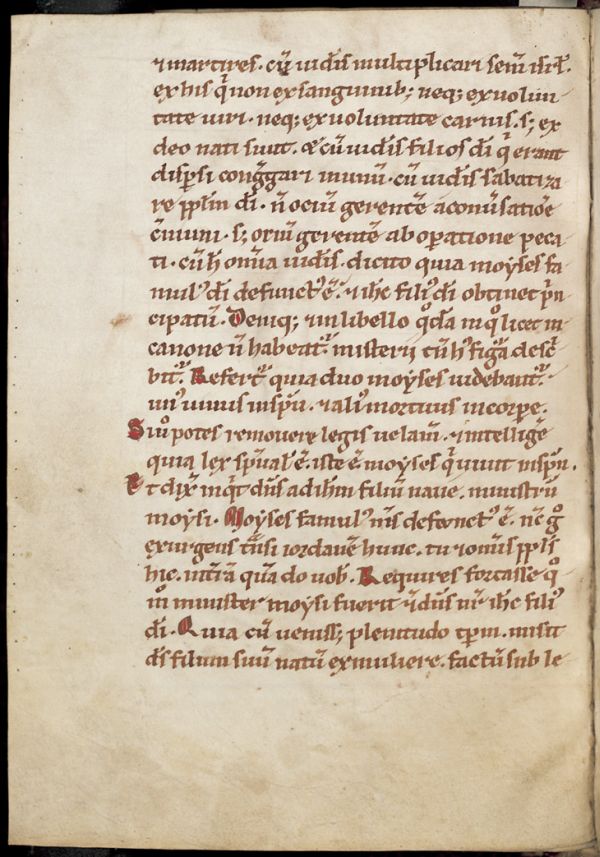 ⁊ martires. cū uidis multiplicari semī isrł.
ex his q̄ non ex sanguinib; neq; ex uolun
tate uiri. neq; ex uoluntate carnis. s; ex
deo nati sunt. & cū uidis filios dī q̄ erant
dispsi conggari in unū. cū uidis sabatiza
re pplm dī. n̄ ociū gerentē a conūsatiōe
cōmuni. s; ociū gerentē ab opatione peca
ti. cū h̄ omīa uidis. dicito quia moyses fa
mul᾽ dī defunct᾽ ē. ⁊ ih̄c fili᾽ dī obtinet pn
cipatū. Deniq; ⁊ in libello q°dā in q° licet in
canone n̄ habeat᾽. misterii tn̄ h᾽ figa desc̄
bit᾽. Refert᾽ quia duo moyses uidebant᾽.
un᾽ uiuus in spū. ⁊ ali᾽ mortuus in corpe.
Si n̄ potes remouere legis uelam̄. ⁊ intelligē
quia lex spūal᾽ ē. iste ē moyses q̄ uiuit in spū.
Et dix̄ inq̄t dn̄s ad ih̄m filiū naue. ministrū
moysi. Moyses famul᾽ m̄s defunct᾽ ē. nc̄ g°
exurgens tn̄si iordanē hunc. tu ⁊ omnis ppls
hic. in tr̄a quā do uob̄. Requires fortasse q°
m̄ minister moysi fuerit ⁊ dn̄s nr̄ ih̄c fili᾽
dī. Quia cū uenisš; plenitudo tpm. misit
ds̄ filium suū natū ex muliere. factū sub le